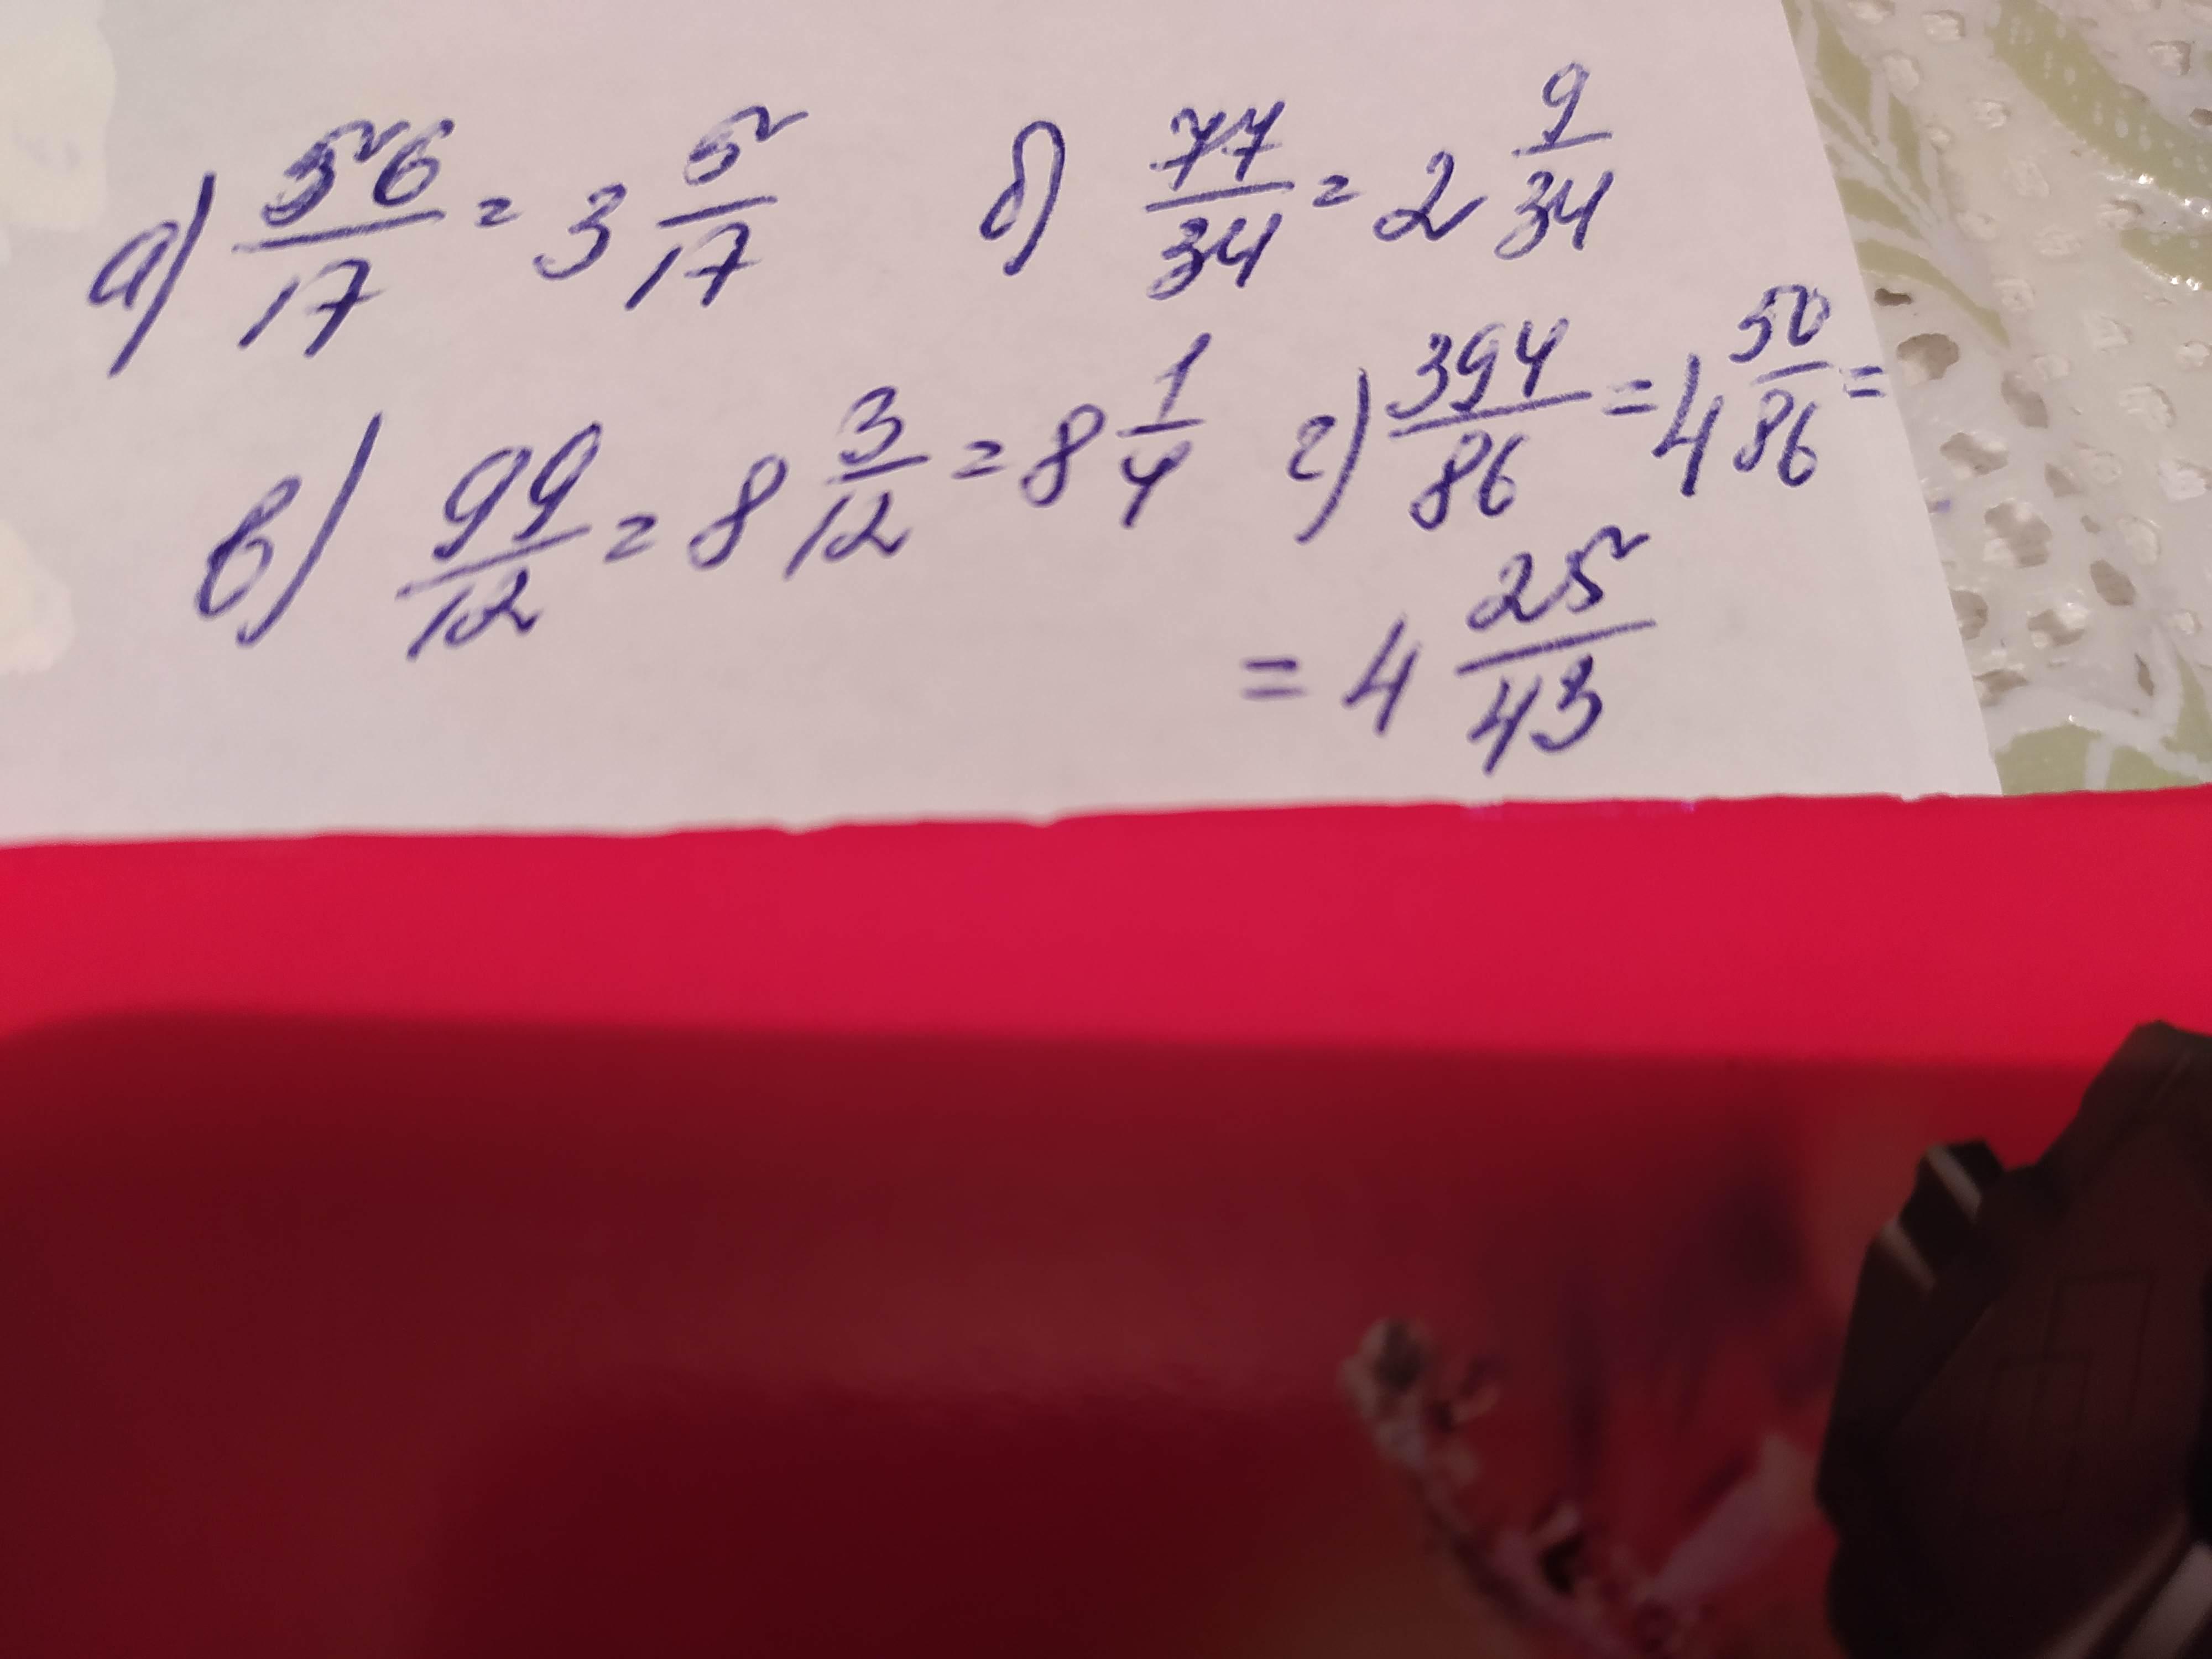 а) 56/17 = 3 5/17 б) 77/34 = 2 9/34
в) 99/12 = 8 3/12 = 8 1/4 г) 394/86 = 4 50/86 =
= 4 25/43